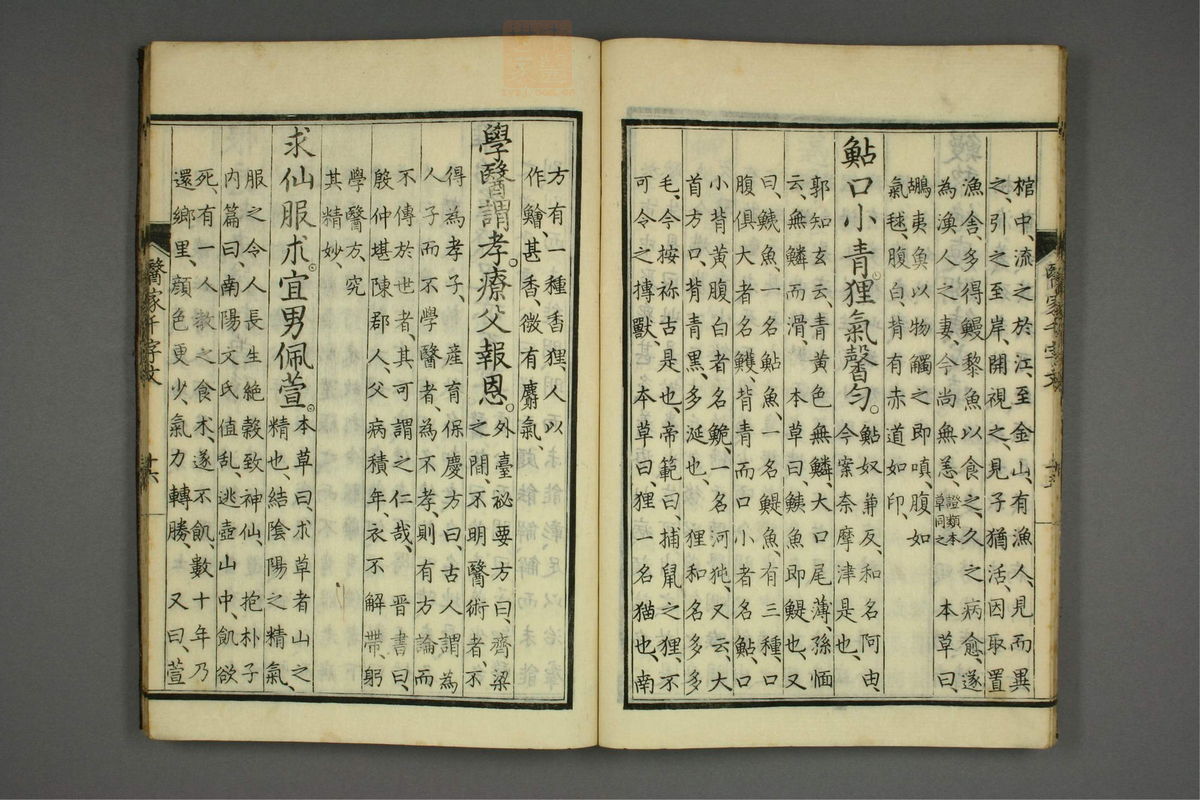 棺中、流之於江、至金山、有漁人、見而異
之、引之至岸、開視之、見子猶活、因取置
漁舎、多得鰻黎魚以食之、久之病愈、遂
為漁人之妻、今尚無恙、證類本草同之 本草曰、
鯸夷魚以物觸之即嗔、腹如
氣毬、腹白、背有赤道如印、
鮎口小青。狸氣馨匀。鮎奴兼反、和名阿由、
今案奈摩津是也、
郭知玄云、青黄色無鱗、大口尾薄、孫愐
云、無鱗而滑、本草曰、鮧魚即鯷也、又
曰、鮧魚、一名鮎魚、一名鯷魚、有三種、口
腹俱大者名鱯、背青而口小者名鮎、口
小背黄腹白者名鮠、一名河㹠、又云、大
首方口、背青黒、多涎也、 狸和名多多
毛、今按祢古是也、帝範曰、捕鼠之狸、不
可令之搏獸、 本草曰、狸一名猫也、南
方有一種香狸、人以
作鱠、甚香、微有麝氣、
學醫謂孝。療父報恩。外臺秘要方曰、齊梁
之間、不明醫術者、不
得為孝子、 産育保慶方曰、古人謂為
人子而不學醫者、為不孝、則有方論而
不傳於世者、其可謂之仁哉、 晋書曰、
殷仲堪陳郡人、父病積年、衣不解帶、躬
學醫方、究
其精妙、
求仙服朮。宜男佩萱。本草曰、朮草者山之、
精也、結陰陽之精氣、
服之令人長生絶穀致神仙、 抱朴子
内篇曰、南陽文氏值乱逃壺山中、飢欲
死、有一人教之食朮、遂不飢、數十年乃
還鄉里、顔色更少氣力轉勝、 又曰、萱
醫家千字文
十六